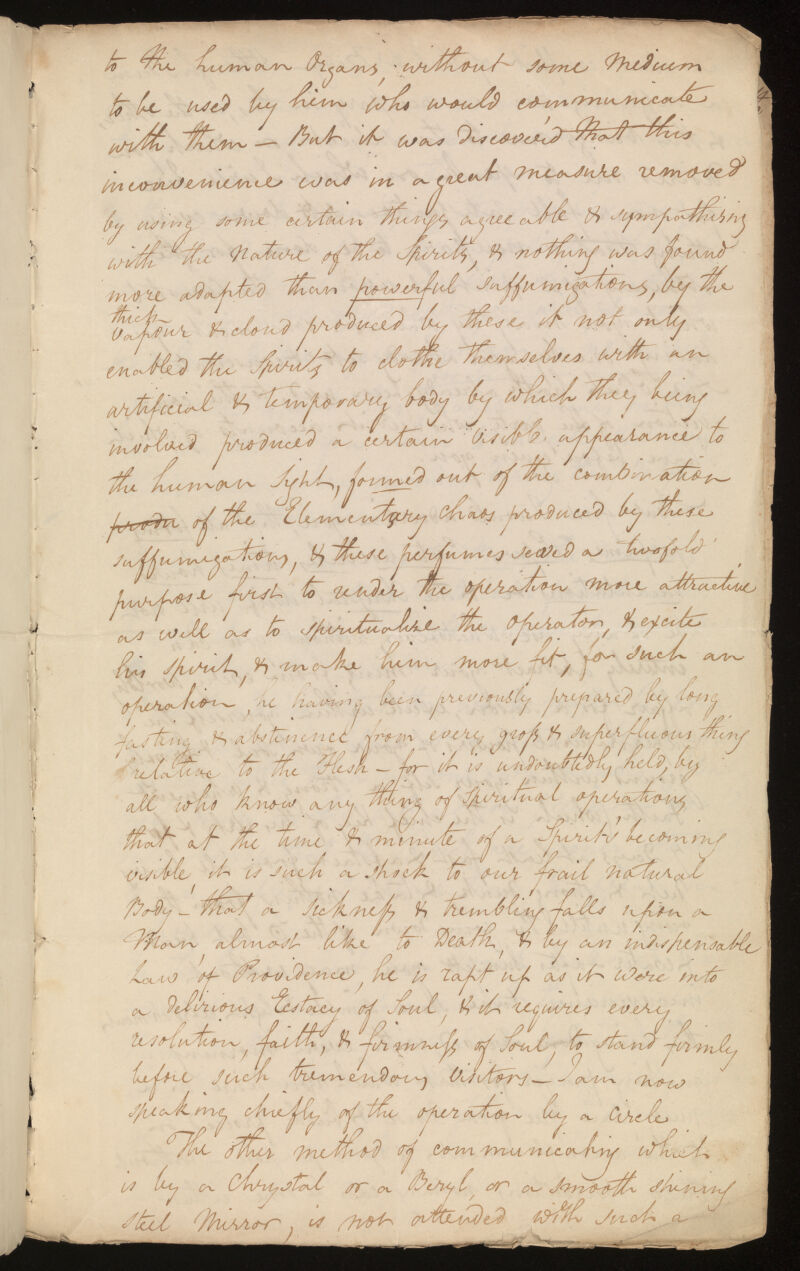 to the human Organs, without some Medium
to be used by him who would communicate
with them – But it was discovered that this
inconvenience was in a great measure removed
by using some certain things agreeable & sympathising
with the Nature of the Spirits, & nothing was found
more adapted than powerful suffumigations, by the
thick
vapour & cloud produced by these it not only
enabled the Spirits to clothe themselves with an
artificial & temporary body by which they being
involved produced a certain visible appearance to
the human Sight, formed out of the combination
produ of the Elementary chaos produced by these
suffumigations, & these perfumes served a twofold
purpose first to render the operation more attractive
as well as to spiritualize the operator, & excite
his spirit, & make him more fit, for such an
operation, he having been previously prepared by long
fasting & abstinence from every gross & superfluous thing
relative to the Flesh – for it is undoubtedly held, by
all who know any thing of Spiritual operations
that at the time & minute of a Spirits becoming
visible, it is such a shock to our frail natural
Body – that a sickness & trembling falls upon a
Man, almost like to Death, & by an indispensable
Law of Providence, he is rapt up as it were into
a delirious Ecstacy of Soul, & it requires every
resolution, faith, & firmness of Soul, to stand firmly
before such tremendous visitors – I am now
speaking chiefly of the operation by a circle
The other method of communicating which
is by a Chrystal or a Beryl, or a smooth shining
steel Mirror, is not attended with such a